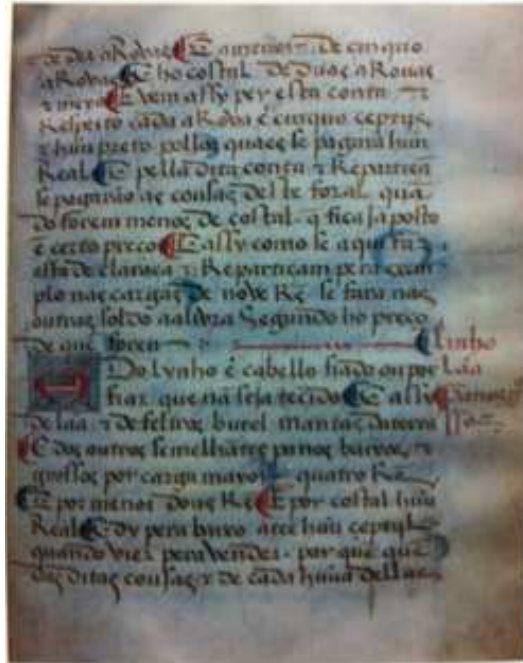 de dez aRobas E a menor De cinquo
aRobas E ho costal De duas aRobas
e mea E vem assy per esta conta e
Respeito cada aRoba é cinquo ceptijs
e huũ preto pollos quaes se pagara huũ
Real E pella dita conta e Repartiçã
se pagarão as cousas deste foral quã
do forem menos de costal q fica ja posto
é certo preço E assy como se aqui faz
esta declaraça e Reparticam pera exem
plo nas cargas de nove Rs se fara nas
outras soldo aalivra Segundo ho preço
de que forem Linho
Do lynho é cabello fiado ou por Lãa
fiar que nã seja tecido E assy panos
de laa e de feltros burel mantas da terra
E dos outros semelhantes panos baixos e
grossos por carga mayor quatro Rs
E por menor dous Rs E por costal huũ
Real E dy pera baixo atee huũ ceptijl
quando vier pera vender porque quẽ
das ditas cousas e de cada huũa dellas